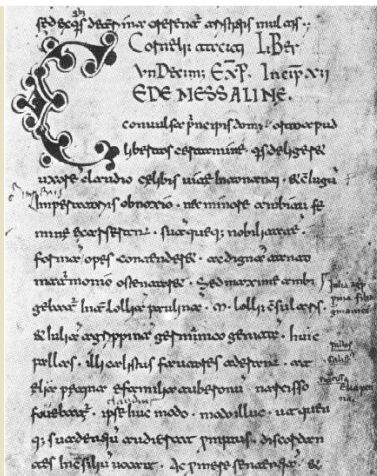 sed ex quis deterrima orerentur tristitiis multis :
Cornelii taciti LiBer
VnDecim; EXP. Incip xii
CEDE MESSALINE.
convulsa principis domus orto apud
libertos certamine. quis deligeret
uxore claudio celibis vite
Imperatoris obnoxio. nec minore ambitu fe
mine exarserant. suaque queq; nobilitate.
forma opes contendere. ac digna tanto
matrimonio ostentare. Sed maxime ambi
gebatur inter lollia paulina. M. lollii consularis.
& Iulia agrippina germanico genita. huic
pallas. illi calistus fautores aderant. at
elia petina e familia tuberonu. narcisso
fovebatur. ipse huc modo. modo illuc. ut quem
q; suadentiu audierat promptus. discordan
tes in consiliu vocat. Ac promere sententia. &
claudius
pallas
calist
narcissus